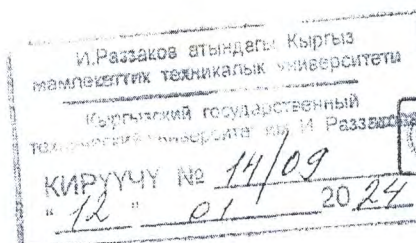 И.Раззаков атындагы Кыргыз
мамлекеттик техникалык университети
Кыргызский государственный
технический университет им И Раззакова
КИРҮҮЧҮ № 14/09
"12" 01 2024